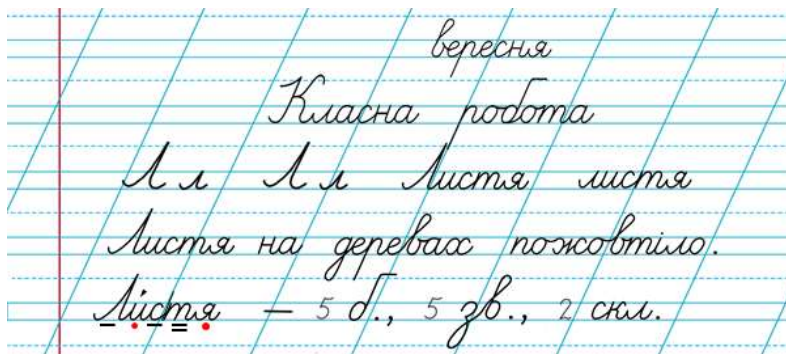 вересня
Класна робота
Л л Л л Листя листя
Листя на деревах пожовтіло.
Ли́стя — 5 б., 5 зв., 2 скл.